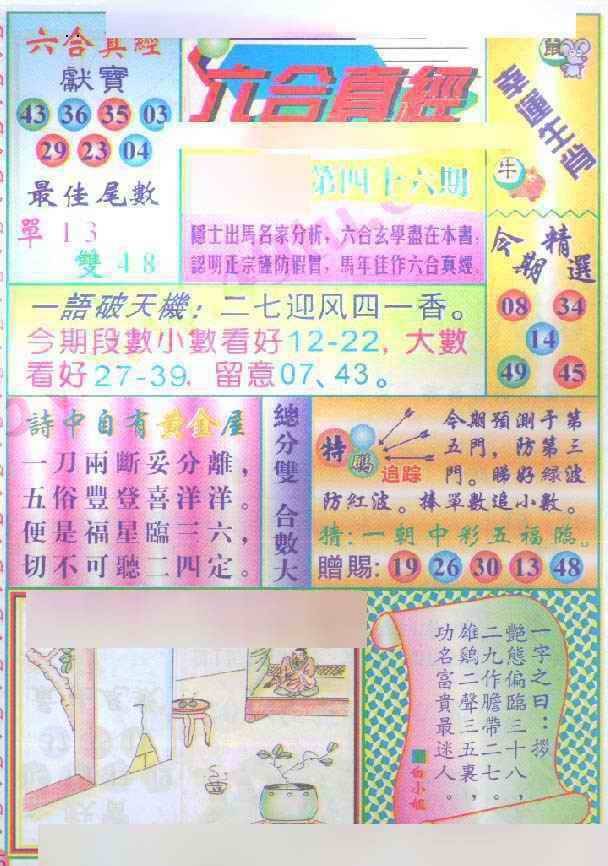 六合真經
獻寶
43 36 35 03
29 23 04
最佳尾數
單 13
雙 48
六合真經
第四十六期
隱士出馬名家分析，六合玄學盡在本書；
認明正宗謹防假冒，馬年佳作六合真經。
鼠
幸運生肖
牛
今期精選
08 34
14
49 45
一語破天機：二七迎风四一香。
今期段數小數看好12-22, 大數
看好27-39, 留意07、43。
詩中自有黃金屋
一刀兩斷妥分離，
五俗豐登喜洋洋。
便是福星臨三六，
切不可聽二四定。
總分雙 合數大
特碼
追踪
今期預測于第
五門，防第三
門。睇好綠波
防紅波。捧單數追小數。
猜：一朝中彩五福臨。
贈賜: 19 26 30 13 48
一字之曰：拶
艷態偏臨三十八，
二九作膽帶二七。
雄鷄二聲三五裏，
功名富貴最迷人。
白小姐